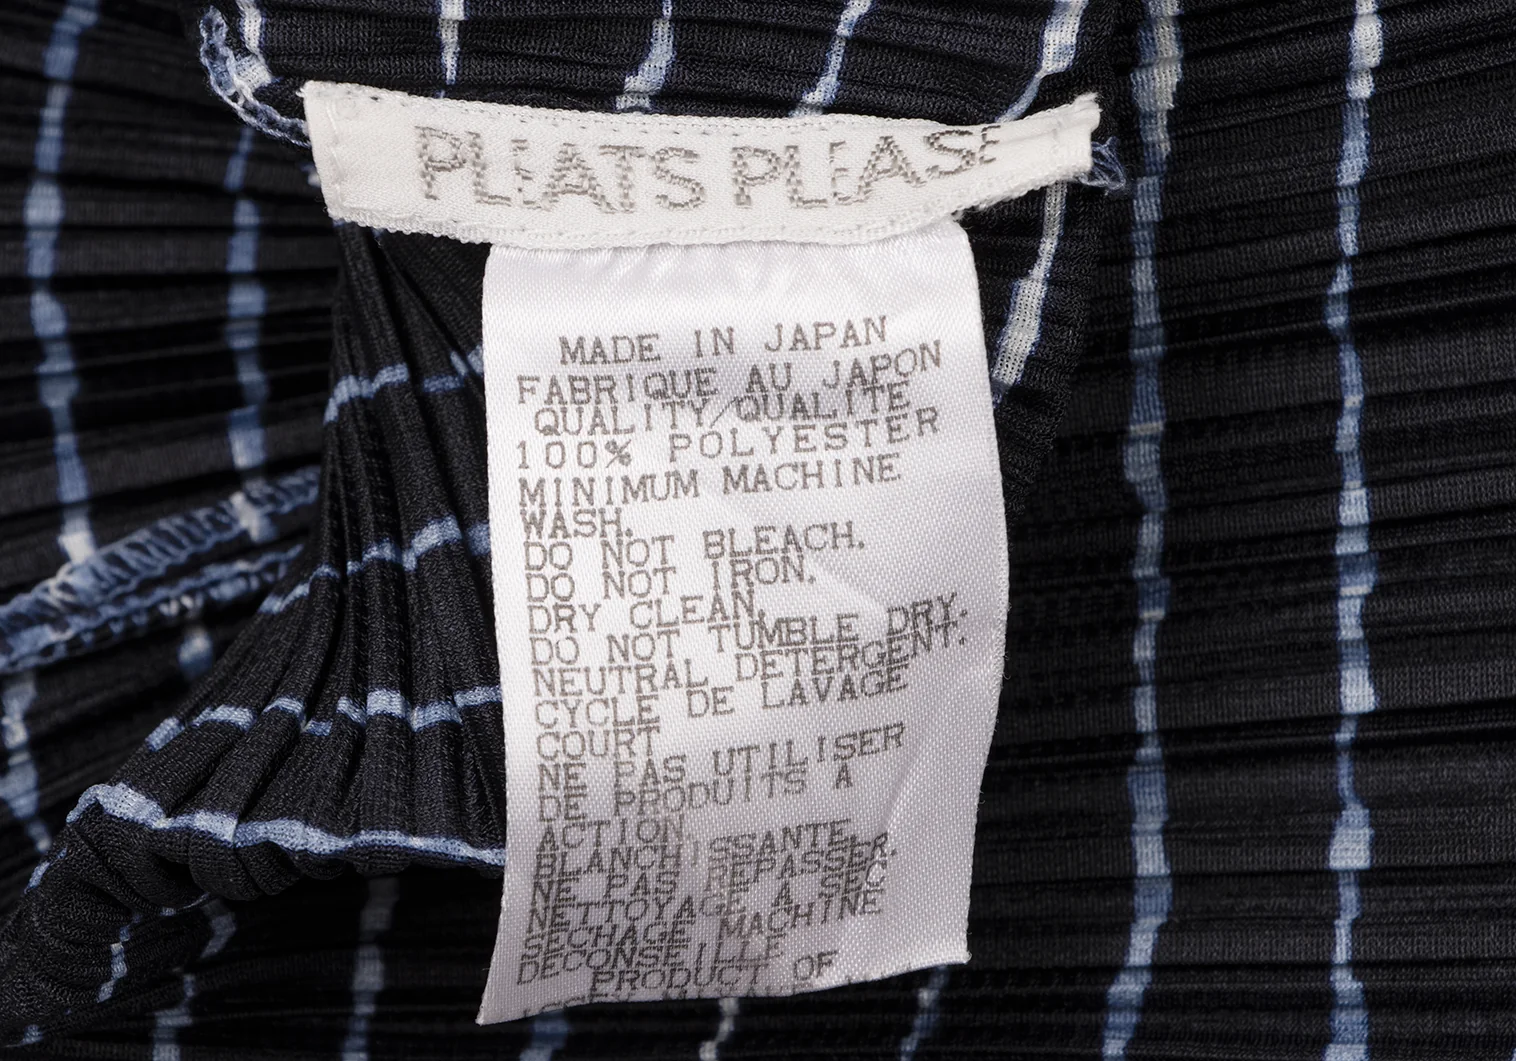 PLEATS PLEASE
MADE IN JAPAN
FABRIQUE AU JAPON
QUALITY/QUALITE
100% POLYESTER
MINIMUM MACHINE
WASH.
DO NOT BLEACH.
DO NOT IRON.
DRY CLEAN.
DO NOT TUMBLE DRY.
NEUTRAL DETERGENT.
CYCLE DE LAVAGE
COURT
NE PAS UTILISER
DE PRODUITS A
ACTION
BLANCHISSANTE
NE PAS REPASSER.
NETTOYAGE A SEC
SECHAGE MACHINE
DECONSEILLE
PRODUCT OF